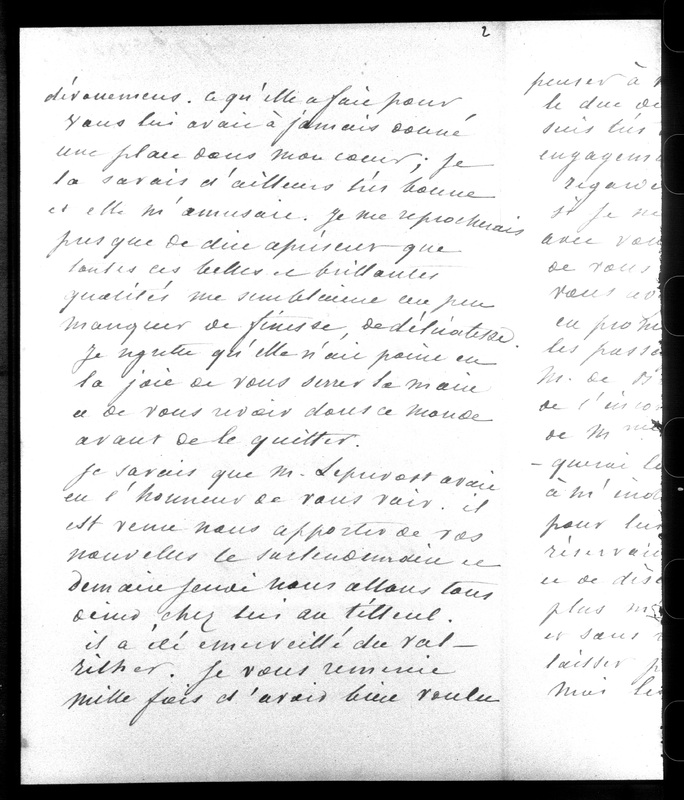 2
dévouemens. ce qu'elle a fait pour
vous lui avait à jamais donné
une place dans mon coeur, je
la savais d'ailleurs très bonne
et elle m'amusait. je me reprocherais
presque de dire àprésent que
toutes ces belles et brillantes
qualités me semblaient un peu
manquer de finesse, de délicatesse.
Je regrette qu'elle n'ait point eu
la joie de vous serrer la main
et de vous revoir dans ce monde
avant de le quitter.
Je savais que M. Leprevost avait
eu l'honneur de vous voir. il
est venu nous apporter de vos
nouvelles le surlendemain et
demain jeudi nous allons tous
diner chez lui au tilleul.
il a été émerveillé du val-
richer. Je vous remercie
mille fois d'avoir bien voulu
penser à
le duc de
suis très
engagem
regard
si je ne
avec vou
de vous
vous
en prom
les pass
M. de
de l'incon
de Mme
-querai le
à m'
pour lui
réservai
et de dis
plus
et sans
laisser p
moi